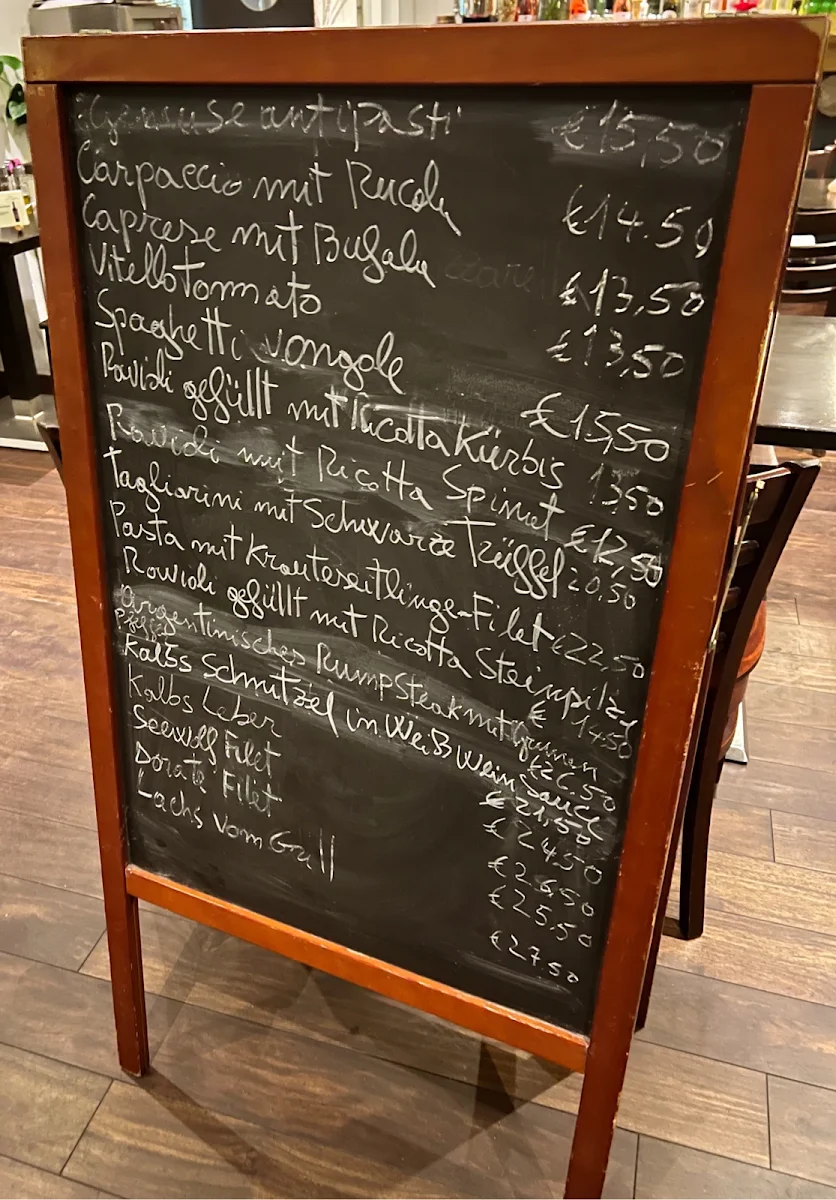 Gemuse antipasti €15,50
Carpaccio mit Rucola €14.50
Caprese mit Bufala €13,50
Vitello Tonnato €13,50
Spaghetti vongole €15,50
Ravioli gefüllt mit Ricotta Kürbis 13,50
Ravioli mit Ricotta Spinat €12,50
Tagliarini mit Schwarze Trüffel 20,50
Pasta mit Krauterseitlinge-Filet €22,50
Ravioli gefüllt mit Ricotta Steinpilze € 14.50
Argentinisches Rumpsteak mit grünen
Pfeffer €26.50
Kalbs Schnitzel in Weißwein Sauce €21,50
Kalbs Leber €24,50
Seewolf Filet €26,50
Dorade Filet €25,50
Lachs vom Grill €27.50